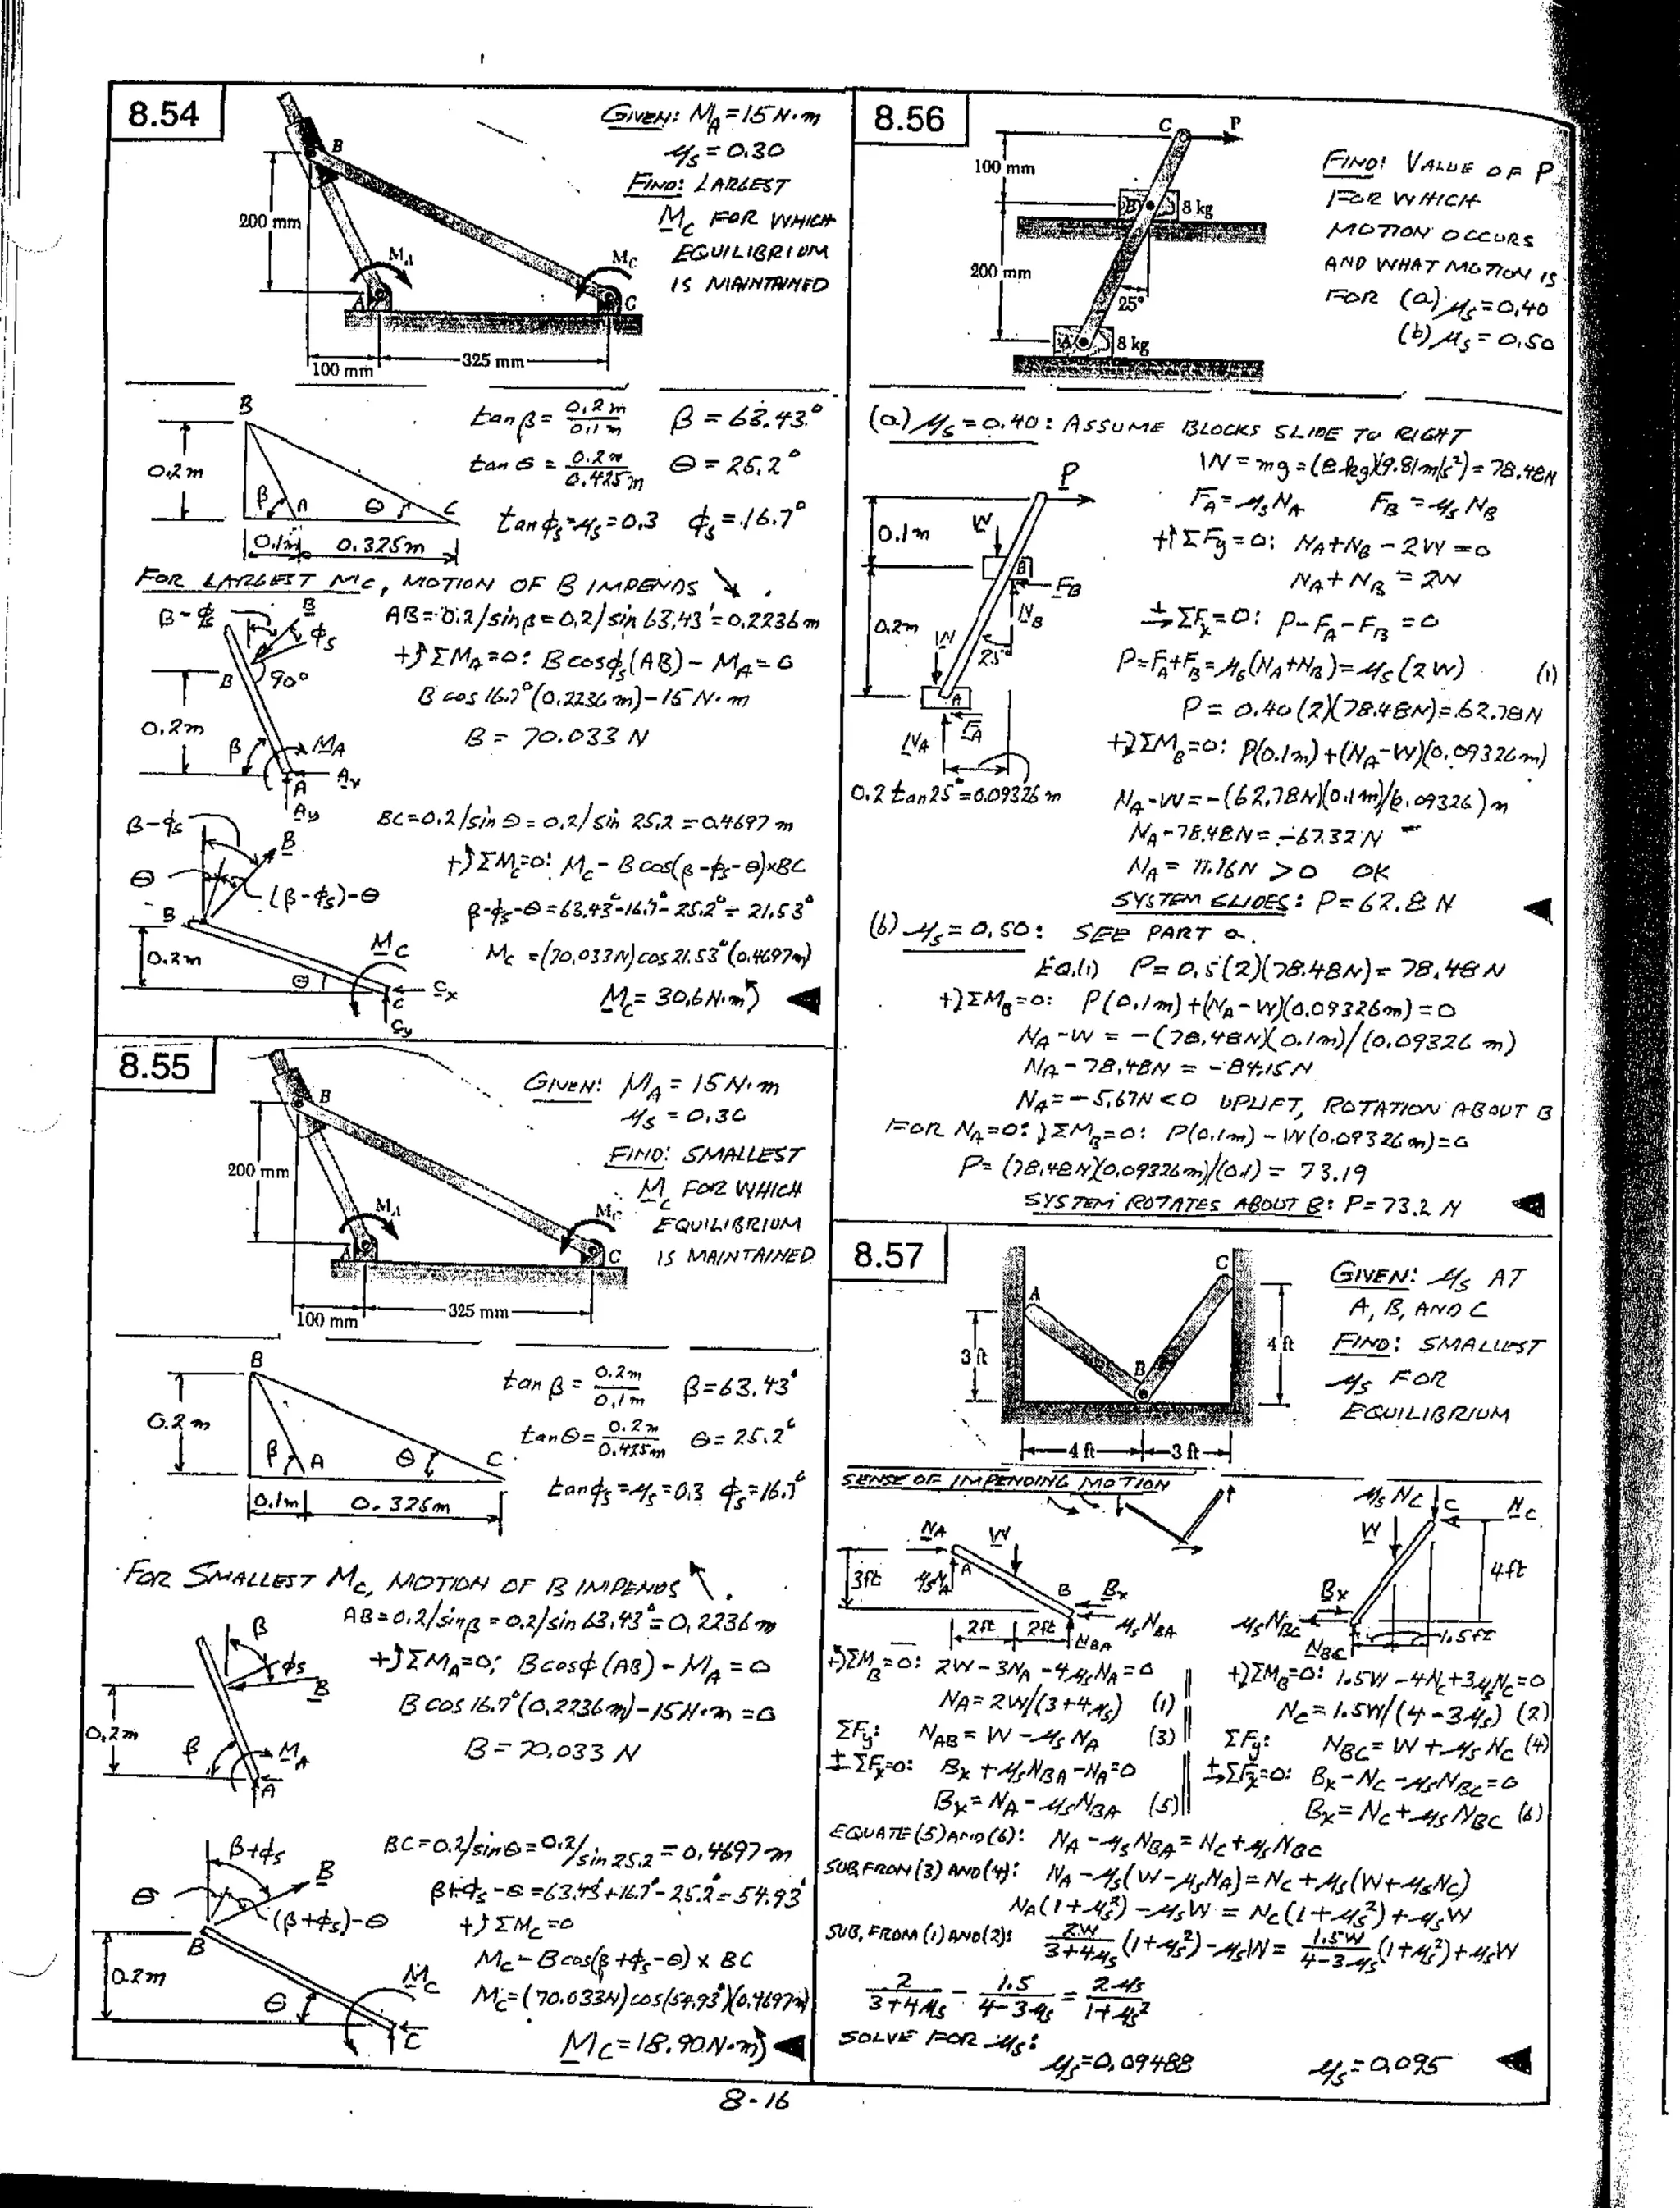 8.54
GIVEN: M_A = 15 N·m
μs = 0.30
FIND: LARGEST
M_C FOR WHICH
EQUILIBRIUM
IS MAINTAINED
B
200 mm
M_A
M_C
A
C
100 mm
325 mm
B
0.2 m
β
A
θ
C
0.1 m
0.325 m
tan β = 0.2 m / 0.1 m   β = 63.43°
tan θ = 0.2 m / 0.425 m   θ = 25.2°
tan φs = μs = 0.3   φs = 16.7°
FOR LARGEST M_C, MOTION OF B IMPENDS ↘.
β - φs
B
φs
B
90°
0.2 m
β
M_A
A_x
A
A_y
AB = 0.2/sin β = 0.2/sin 63.43° = 0.2236 m
+↺ ΣM_A = 0: B cos φs (AB) - M_A = 0
B cos 16.7° (0.2236 m) - 15 N·m
B = 70.033 N
β - φs
B
θ
(β - φs) - θ
B
0.2 m
M_C
θ
C_x
C
C_y
BC = 0.2/sin θ = 0.2/sin 25.2 = 0.4697 m
+↺ ΣM_C = 0: M_C - B cos(β - φs - θ) × BC
β - φs - θ = 63.43° - 16.7° - 25.2° = 21.53°
M_C = (70.033 N) cos 21.53° (0.4697 m)
M_C = 30.6 N·m ↺ ◀
8.55
GIVEN: M_A = 15 N·m
μs = 0.30
FIND: SMALLEST
M_C FOR WHICH
EQUILIBRIUM
IS MAINTAINED
B
200 mm
M_A
M_C
A
C
100 mm
325 mm
B
0.2 m
β
A
θ
C
0.1 m
0.325 m
tan β = 0.2 m / 0.1 m   β = 63.43°
tan θ = 0.2 m / 0.425 m   θ = 25.2°
tan φs = μs = 0.3   φs = 16.7°
FOR SMALLEST M_C, MOTION OF B IMPENDS ↖.
β
φs
B
0.2 m
β
M_A
A
AB = 0.2/sin β = 0.2/sin 63.43° = 0.2236 m
+↺ ΣM_A = 0: B cos φ (AB) - M_A = 0
B cos 16.7° (0.2236 m) - 15 N·m = 0
B = 70.033 N
β + φs
B
θ
(β + φs) - θ
B
0.2 m
M_C
θ
C
BC = 0.2/sin θ = 0.2/sin 25.2 = 0.4697 m
β + φs - θ = 63.43° + 16.7° - 25.2° = 54.93°
+↺ ΣM_C = 0
M_C - B cos(β + φs - θ) × BC
M_C = (70.033 N) cos(54.93°)(0.4697 m)
M_C = 18.90 N·m ↺ ◀
8.56
C
P
100 mm
B
8 kg
200 mm
25°
A
8 kg
FIND: VALUE OF P
FOR WHICH
MOTION OCCURS
AND WHAT MOTION IS
FOR (a) μs = 0.40
(b) μs = 0.50
(a) μs = 0.40: ASSUME BLOCKS SLIDE TO RIGHT
P
0.1 m
W
B
F_B
N_B
0.2 m
W
25°
A
N_A
F_A
0.2 tan 25° = 0.09326 m
W = mg = (8 kg)(9.81 m/s²) = 78.48 N
F_A = μs N_A   F_B = μs N_B
+↑ ΣF_y = 0: N_A + N_B - 2W = 0
N_A + N_B = 2W
+→ ΣF_x = 0: P - F_A - F_B = 0
P = F_A + F_B = μs (N_A + N_B) = μs (2W)   (1)
P = 0.40 (2)(78.48 N) = 62.78 N
+↻ ΣM_B = 0: P(0.1 m) + (N_A - W)(0.09326 m)
N_A - W = -(62.78 N)(0.1 m)/(0.09326) m
N_A - 78.48 N = -67.32 N
N_A = 11.16 N > 0   OK
SYSTEM SLIDES: P = 62.8 N ◀
(b) μs = 0.50: SEE PART a.
EQ.(1)   P = 0.5 (2)(78.48 N) = 78.48 N
+↻ ΣM_B = 0: P(0.1 m) + (N_A - W)(0.09326 m) = 0
N_A - W = -(78.48 N)(0.1 m)/(0.09326 m)
N_A - 78.48 N = -84.15 N
N_A = -5.67 N < 0   UPLIFT, ROTATION ABOUT B
FOR N_A = 0: ↻ ΣM_B = 0: P(0.1 m) - W(0.09326 m) = 0
P = (78.48 N)(0.09326 m)/(0.1) = 73.19
SYSTEM ROTATES ABOUT B: P = 73.2 N ◀
8.57
A
C
3 ft
B
4 ft
4 ft
3 ft
GIVEN: μs AT
A, B, AND C
FIND: SMALLEST
μs FOR
EQUILIBRIUM
SENSE OF IMPENDING MOTION
N_A
W
3 ft
μs N_A
A
B
B_x
μs N_BA
2 ft
2 ft
N_BA
μs N_C
C
N_C
W
4 ft
B_x
μs N_BC
N_BC
1.5 ft
+↺ ΣM_B = 0: 2W - 3N_A - 4μs N_A = 0
N_A = 2W/(3 + 4μs)   (1)
ΣF_y: N_AB = W - μs N_A   (3)
+ ΣF_x = 0: B_x + μs N_BA - N_A = 0
B_x = N_A - μs N_BA   (5)
+↻ ΣM_B = 0: 1.5W - 4N_C + 3μs N_C = 0
N_C = 1.5W/(4 - 3μs)   (2)
ΣF_y: N_BC = W + μs N_C   (4)
+→ ΣF_x = 0: B_x - N_C - μs N_BC = 0
B_x = N_C + μs N_BC   (6)
EQUATE (5) AND (6): N_A - μs N_BA = N_C + μs N_BC
SUB. FROM (3) AND (4): N_A - μs (W - μs N_A) = N_C + μs (W + μs N_C)
N_A (1 + μs²) - μs W = N_C (1 + μs²) + μs W
SUB. FROM (1) AND (2): 2W/(3 + 4μs) (1 + μs²) - μs W = 1.5W/(4 - 3μs) (1 + μs²) + μs W
2/(3 + 4μs) - 1.5/(4 - 3μs) = 2μs/(1 + μs²)
SOLVE FOR μs:
μs = 0.09488   μs = 0.095 ◀
8-16